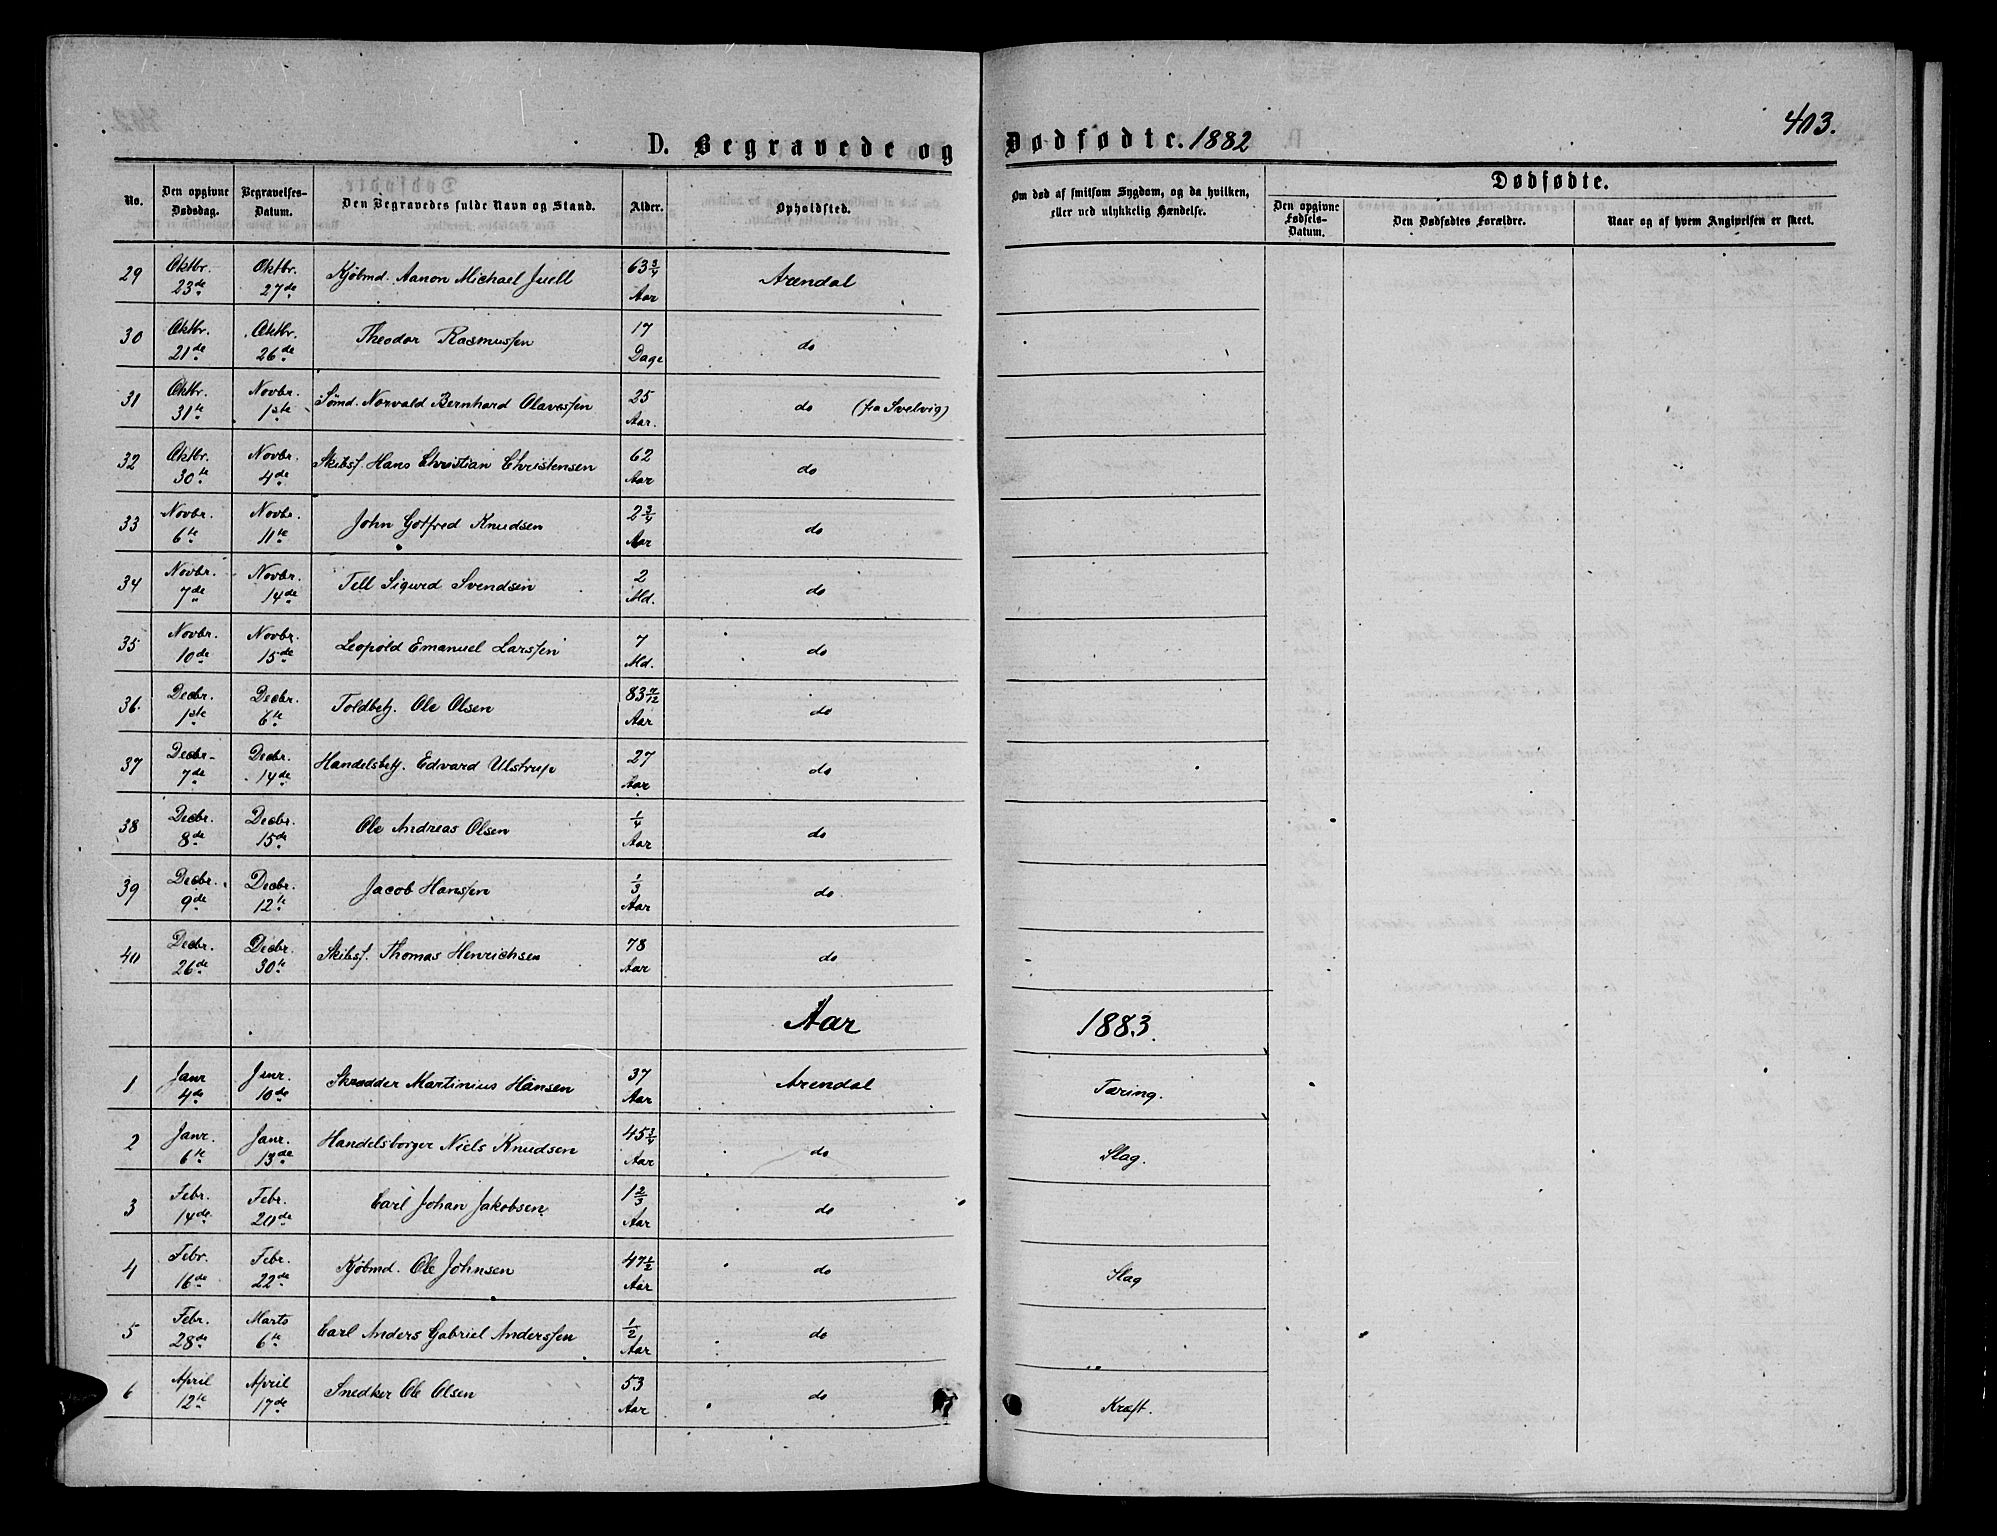 403.
D. Begravede og Dødfødte. 1882
No. | Den opgivne Dødsdag. | Begravelses-Datum. | Den Begravedes fulde Navn og Stand. | Alder. | Opholdsted. | Om død af smitsom Sygdom, og da hvilken, eller ved ulykkelig Hændelse. | Dødfødte. | Den opgivne Fødsels-Datum. | Den Dødfødtes Forældre. | Naar og af hvem Angivelsen er skeet.
29 | Oktbr. 23de | Oktbr. 27de | Kjøbmd. Aanon Michael Juell | 63 3/4 Aar | Arendal
30 | Oktbr. 21de | Oktbr. 26de | Theodor Rasmussen | 17 Dage | do
31 | Oktbr. 31te | Novbr. 1ste | Sømd. Norvald Bernhard Olavessen | 25 Aar. | do (fra Svelvig)
32 | Oktbr. 30te | Novbr. 4de | Skibsf. Hans Christian Christensen | 62 Aar | do
33 | Novbr. 6te | Novbr. 11te | John Gotfred Knudsen | 2 3/4 Aar | do
34 | Novbr. 7de | Novbr. 14de | Tell Sigurd Svendsen | 2 Md. | do
35 | Novbr. 10de | Novbr. 15de | Leopold Emanuel Larssen | 7 Md. | do
36 | Decbr. 1ste | Decbr. 6te | Toldbetj. Ole Olsen | 83 7/12 Aar | do
37 | Decbr. 7de | Decbr. 14de | Handelsbetj. Edvard Ulstrup | 27 Aar | do
38 | Decbr. 8de | Decbr. 15de | Ole Andreas Olsen | 1/4 Aar | do
39 | Decbr. 9de | Decbr. 12te | Jacob Hanssen | 1/3 Aar | do
40 | Decbr. 26de | Decbr. 30te | Skibsf. Thomas Henrichsen | 78 Aar | do
Aar 1883.
1 | Janr 4de | Janr. 10de | Skrædder Martinius Hansen | 37 Aar | Arendal | Tæring.
2 | Janr. 6te | Janr. 13de | Handelsborger Niels Knudsen | 45 3/4 Aar | do | Slag.
3 | Febr. 14de | Febr. 20de | Carl Johan Jakobsen | 1 2/3 Aar | do
4 | Febr. 16de | Febr. 22de | Kjøbmd. Ole Johnsen | 47 1/2 Aar | do | Slag
5 | Febr. 28de | Marts 6te | Carl Anders Gabriel Anderssen | 1/2 Aar | do
6 | April 12te | April 17de | Snedker Ole Olsen | 53 Aar | do | Kræft.